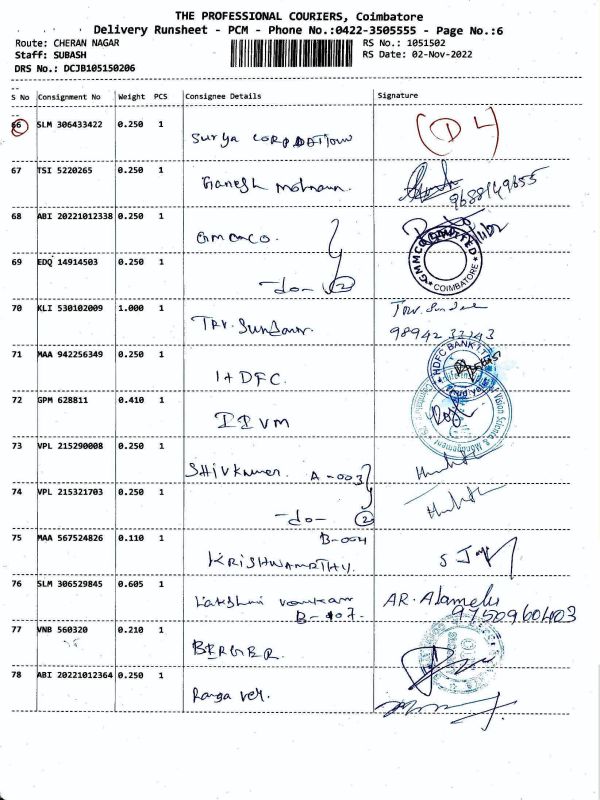 THE PROFESSIONAL COURIERS, Coimbatore
Delivery Runsheet - PCM - Phone No.:0422-3505555 - Page No.:6
Route: CHERAN NAGAR RS No.: 1051502
Staff: SUBASH RS Date: 02-Nov-2022
DRS No.: DCJB105150206
S No Consignment No Weight PCS Consignee Details Signature
66 SLM 306433422 0.250 1
Surya
67 TSI 5220265 0.250 1
Ganesh
9688149655
68 ABI 20221012338 0.250 1
GMMCO LIMITED
COIMBATORE
69 EDQ 14914503 0.250 1
-do- 2
70 KLI 530102009 1.000 1
71 MAA 942256349 0.250 1
HDFC.
HDFC BANK LTD
72 GPM 628811 0.410 1
Vision Science & Management
73 VPL 215290008 0.250 1
SHIVKUMAR. A-003
74 VPL 215321703 0.250 1
-do- 2
75 MAA 567524826 0.110 1
B-004
76 SLM 306529845 0.605 1
AR. Alamelu
9750960403
B-107.
77 VNB 560320 0.210 1
BERGER.
78 ABI 20221012364 0.250 1
Ranga vel.